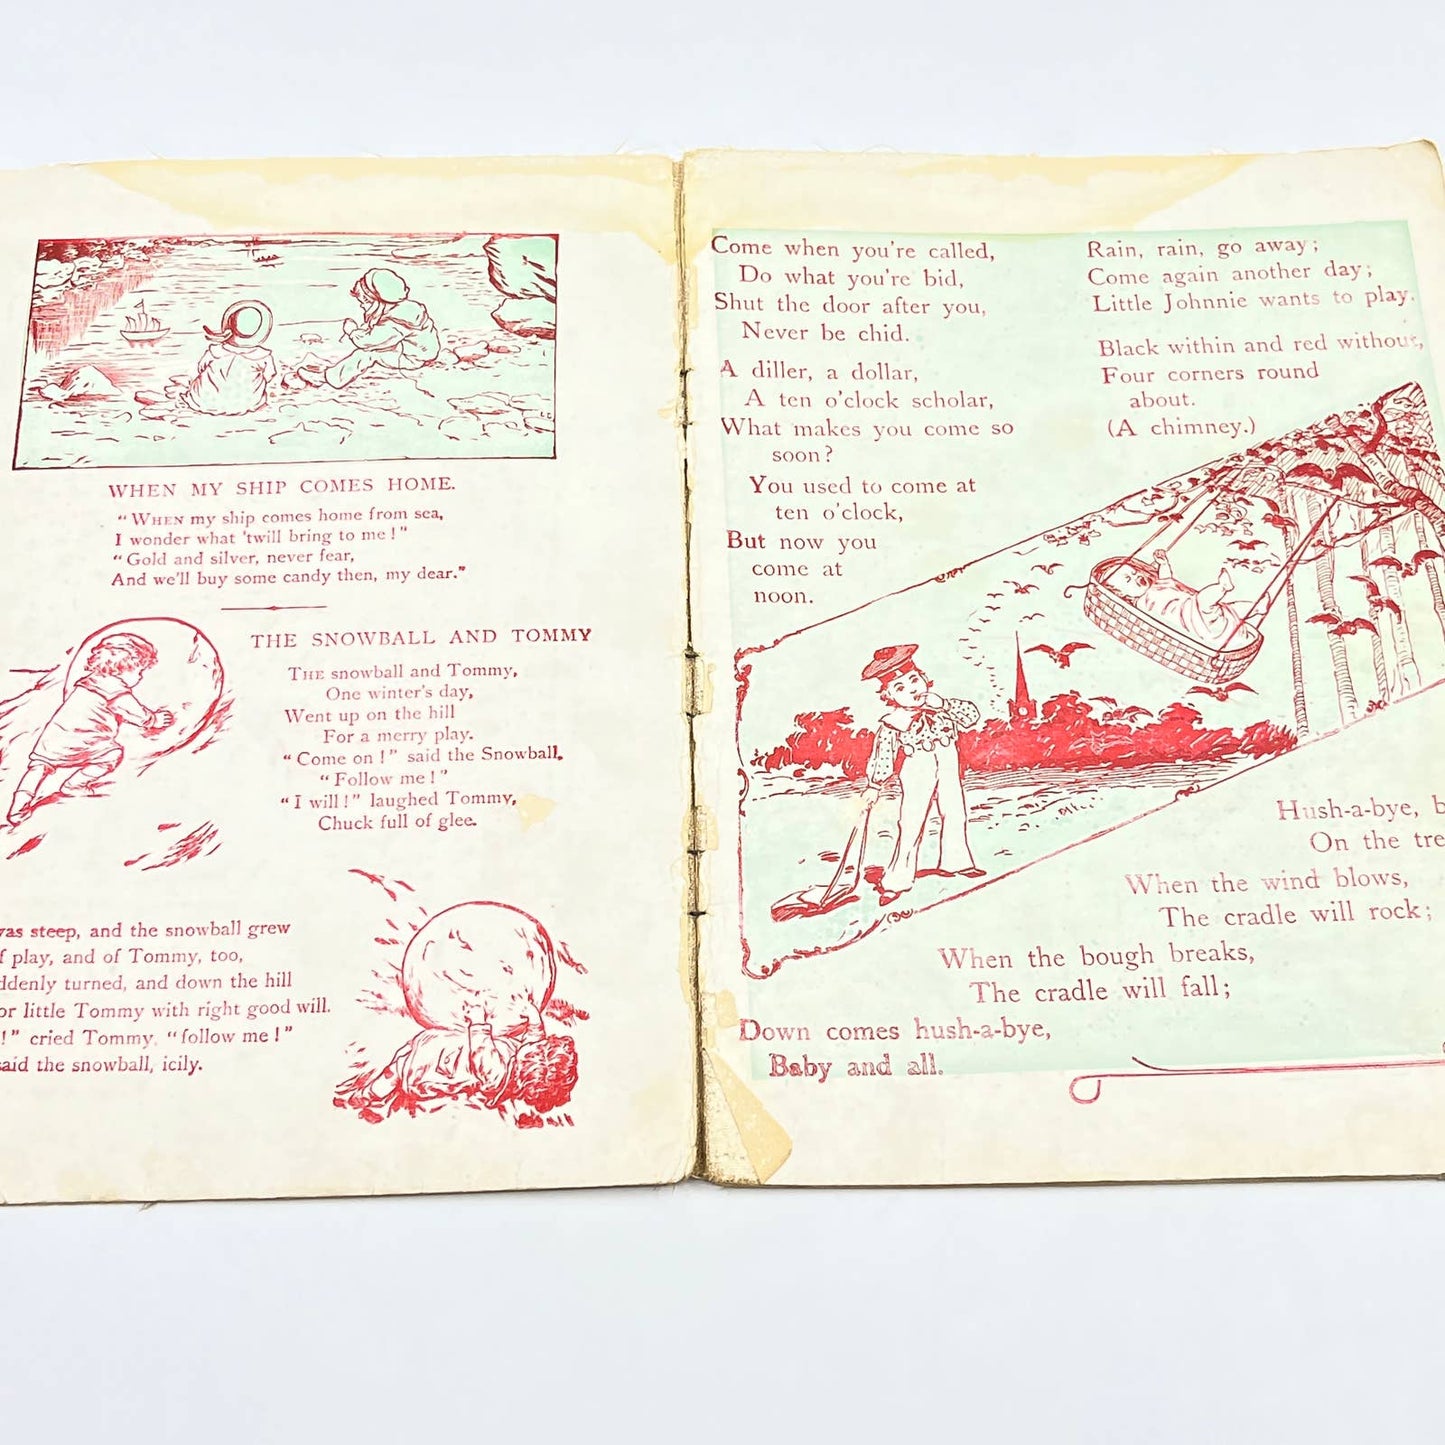 WHEN MY SHIP COMES HOME.
"WHEN my ship comes home from sea,
I wonder what 'twill bring to me!"
"Gold and silver, never fear,
And we'll buy some candy then, my dear."
THE SNOWBALL AND TOMMY
THE snowball and Tommy,
One winter's day,
Went up on the hill
For a merry play.
"Come on!" said the Snowball,
"Follow me!"
"I will!" laughed Tommy,
Chuck full of glee.
was steep, and the snowball grew
play, and of Tommy, too,
turned, and down the hill
little Tommy with right good will.
!" cried Tommy, "follow me!"
said the snowball, icily.
Come when you're called,
Do what you're bid,
Shut the door after you,
Never be chid.
A diller, a dollar,
A ten o'clock scholar,
What makes you come so
soon?
You used to come at
ten o'clock,
But now you
come at
noon.
Rain, rain, go away;
Come again another day;
Little Johnnie wants to play.
Black within and red without,
Four corners round
about.
(A chimney.)
Hush-a-bye,
On the
When the wind blows,
The cradle will rock;
When the bough breaks,
The cradle will fall;
Down comes hush-a-bye,
Baby and all.